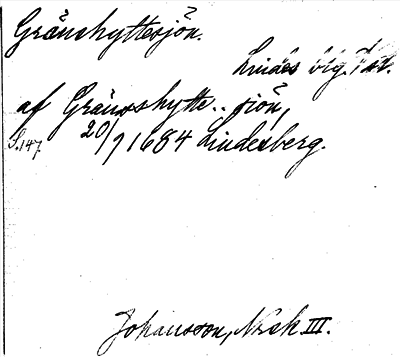 Gränshyttesjön.
Lindes
af Gränsshytte.. siön,
S.147. 20/9 1684 Lindesberg.
Johansson, Nzsk III.